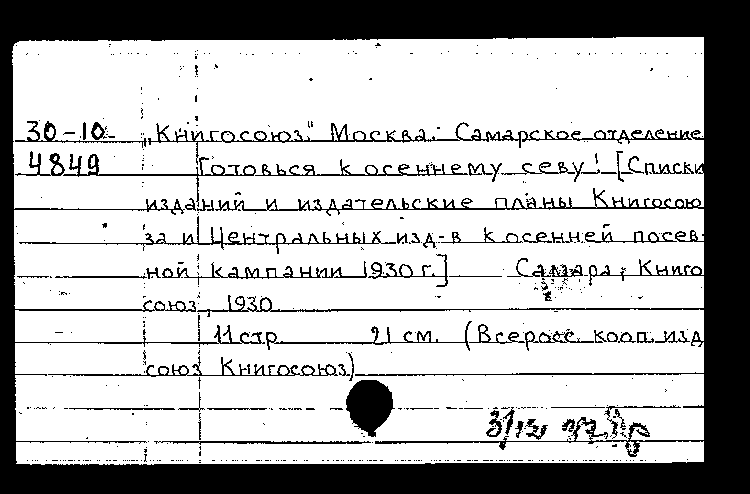 30-10- „Книгосоюз." Москва. Самарское отделение
4849 Готовься к осеннему севу! [Списки
изданий и издательские планы Книгосою
за и Центральных изд-в к осенней посев-
ной кампании 1930 г.] Самара, Книго
союз, 1930
11 стр. 21 см. (Всеросс. кооп. изд
союз Книгосоюз)